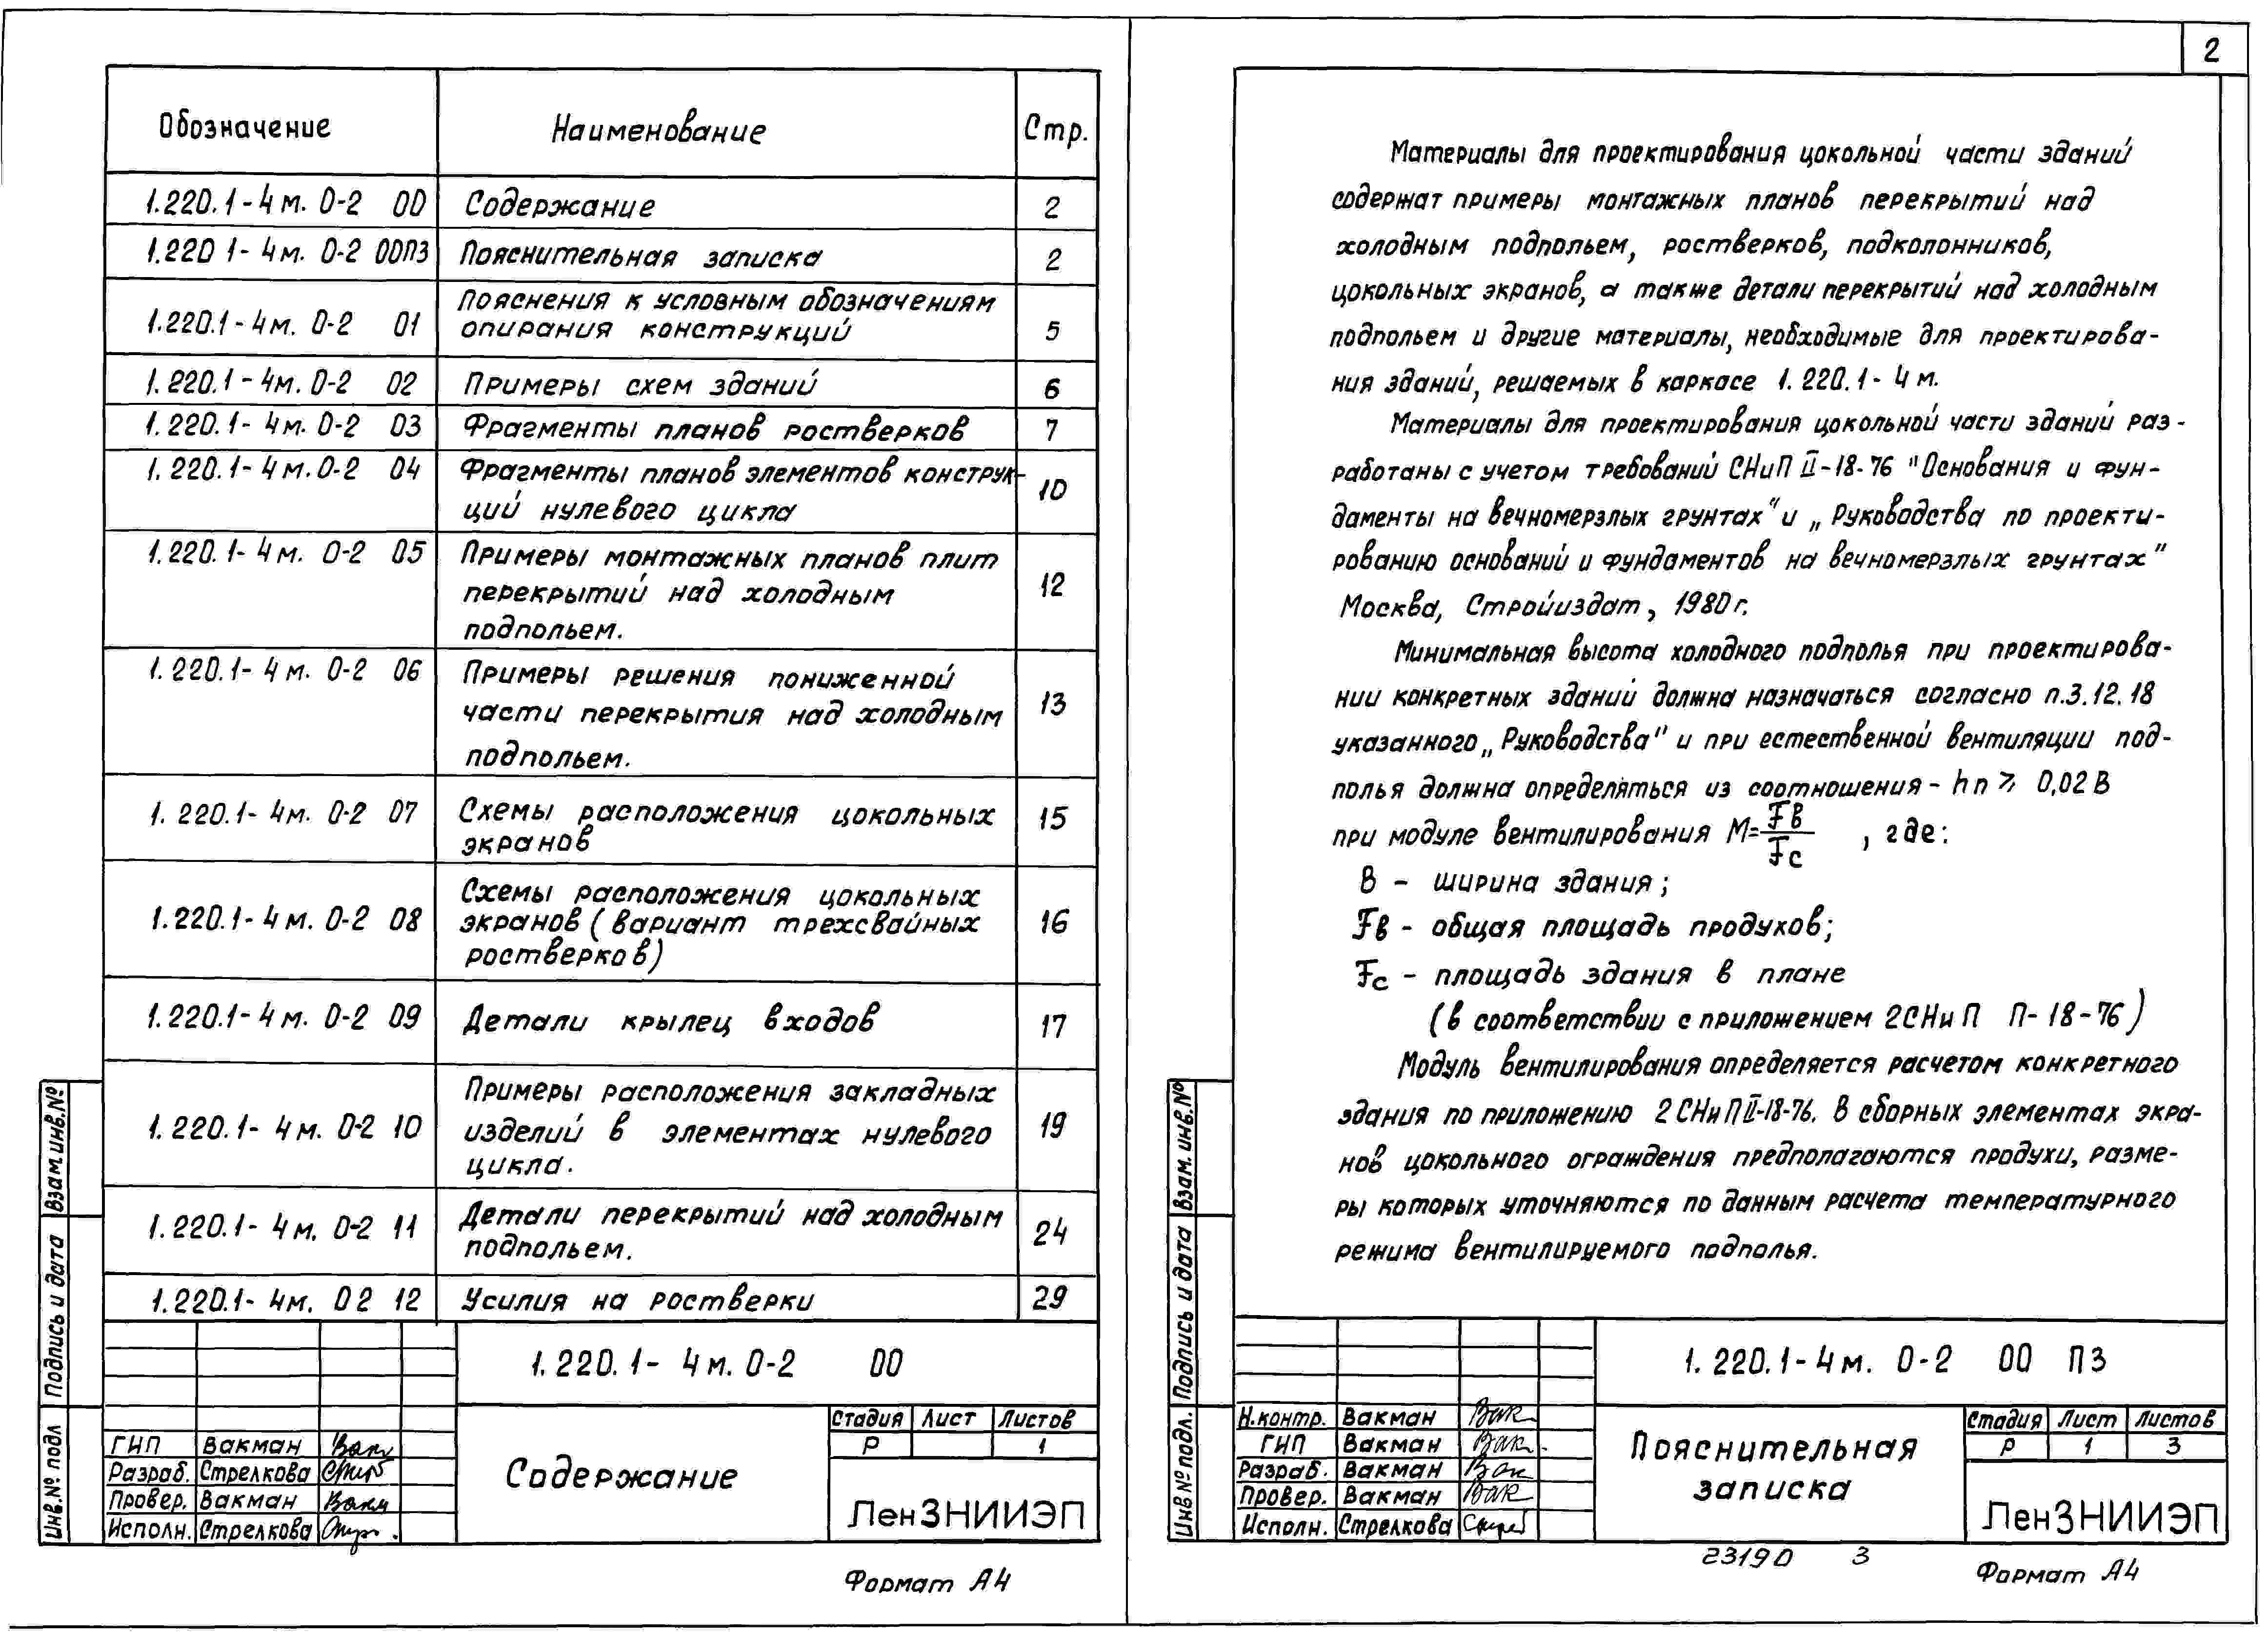 Обозначение Наименование Стр.
1.220.1-4м. 0-2 00 Содержание 2
1.220 1-4м. 0-2 00ПЗ Пояснительная записка 2
Пояснения к условным обозначениям
1.220.1-4м. 0-2 01 опирания конструкций 5
1.220.1-4м. 0-2 02 Примеры схем зданий 6
1.220.1-4м. 0-2 03 Фрагменты планов ростверков 7
1.220.1-4м. 0-2 04 Фрагменты планов элементов конструк-
ций нулевого цикла 10
1.220.1-4м. 0-2 05 Примеры монтажных планов плит
перекрытий над холодным 12
подпольем.
1.220.1-4м. 0-2 06 Примеры решения пониженной
части перекрытия над холодным 13
подпольем.
1.220.1-4м. 0-2 07 Схемы расположения цокольных 15
экранов
Схемы расположения цокольных
1.220.1-4м. 0-2 08 экранов (вариант трехсвайных 16
ростверков)
1.220.1-4м. 0-2 09 Детали крылец входов 17
Примеры расположения закладных
1.220.1-4м. 0-2 10 изделий в элементах нулевого 19
цикла.
1.220.1-4м. 0-2 11 Детали перекрытий над холодным 24
подпольем.
1.220.1-4м. 02 12 Усилия на ростверки 29
1.220.1-4м. 0-2 00
Содержание
Стадия Лист Листов
Р 1
ЛенЗНИИЭП
ГИП Вакман
Разраб. Стрелкова
Провер. Вакман
Исполн. Стрелкова
Взам.инв.№
Подпись и дата
Инв.№ подл
Формат А4
2
Материалы для проектирования цокольной части зданий
содержат примеры монтажных планов перекрытий над
холодным подпольем, ростверков, подколонников,
цокольных экранов, а также детали перекрытий над холодным
подпольем и другие материалы, необходимые для проектирова-
ния зданий, решаемых в каркасе 1.220.1-4м.
Материалы для проектирования цокольной части зданий раз-
работаны с учетом требований СНиП II-18-76 "Основания и фун-
даменты на вечномерзлых грунтах" и „Руководства по проекти-
рованию оснований и фундаментов на вечномерзлых грунтах"
Москва, Стройиздат, 1980г.
Минимальная высота холодного подполья при проектирова-
нии конкретных зданий должна назначаться согласно п.3.12.18
указанного „Руководства" и при естественной вентиляции под-
полья должна определяться из соотношения - hп ⩾ 0,02 В
при модуле вентилирования М=Fв/Fс , где:
В - ширина здания;
Fв - общая площадь продухов;
Fс - площадь здания в плане
(в соответствии с приложением 2 СНиП П-18-76)
Модуль вентилирования определяется расчетом конкретного
здания по приложению 2 СНиП II-18-76. В сборных элементах экра-
нов цокольного ограждения предполагаются продухи, разме-
ры которых уточняются по данным расчета температурного
режима вентилируемого подполья.
1.220.1-4м. 0-2 00 ПЗ
Пояснительная
записка
Стадия Лист Листов
Р 1 3
ЛенЗНИИЭП
Н.контр. Вакман
ГИП Вакман
Разраб. Вакман
Провер. Вакман
Исполн. Стрелкова
Взам.инв.№
Подпись и дата
Инв№подл.
23190 3
Формат А4